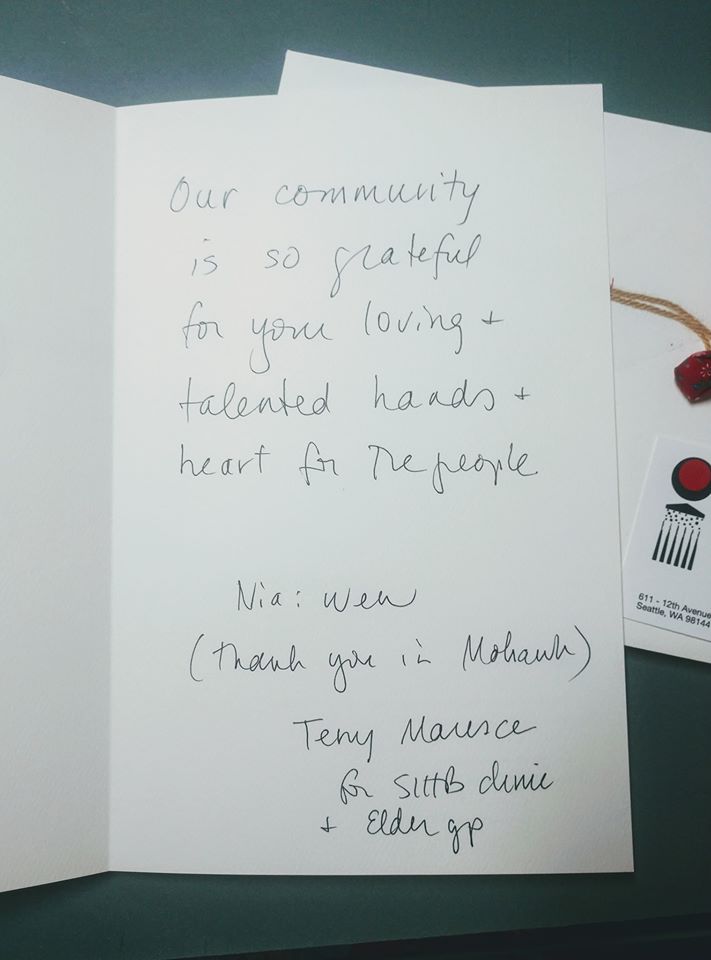 Our community
is so grateful
for your loving +
talented hands +
heart for The people
Nia: wen
(thank you in Mohawk)
Terry Maresca
for SIHB clinic
+ Elder gp
611 - 12th Avenue
Seattle, WA 98144